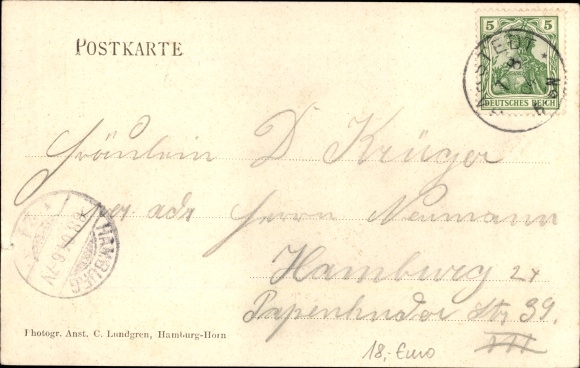 POSTKARTE
5 5
DEUTSCHES REICH
Fräulein D Krüger
per adr Herrn Neumann
Hamburg 24
Papenhuder Str 39.
III
HAMBURG
Photogr. Anst. C. Lundgren, Hamburg-Horn
18,- Euro